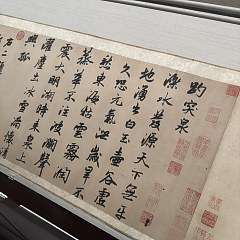 趵突泉
濼水發源天下無平
地湧出白玉壺谷虛
久恐元氣洩歲旱不
愁東海枯雲霧潤
蒸華不注波瀾聲
震大明湖時來泉上
濯塵土冰雪滿懷清
興孤
右二題